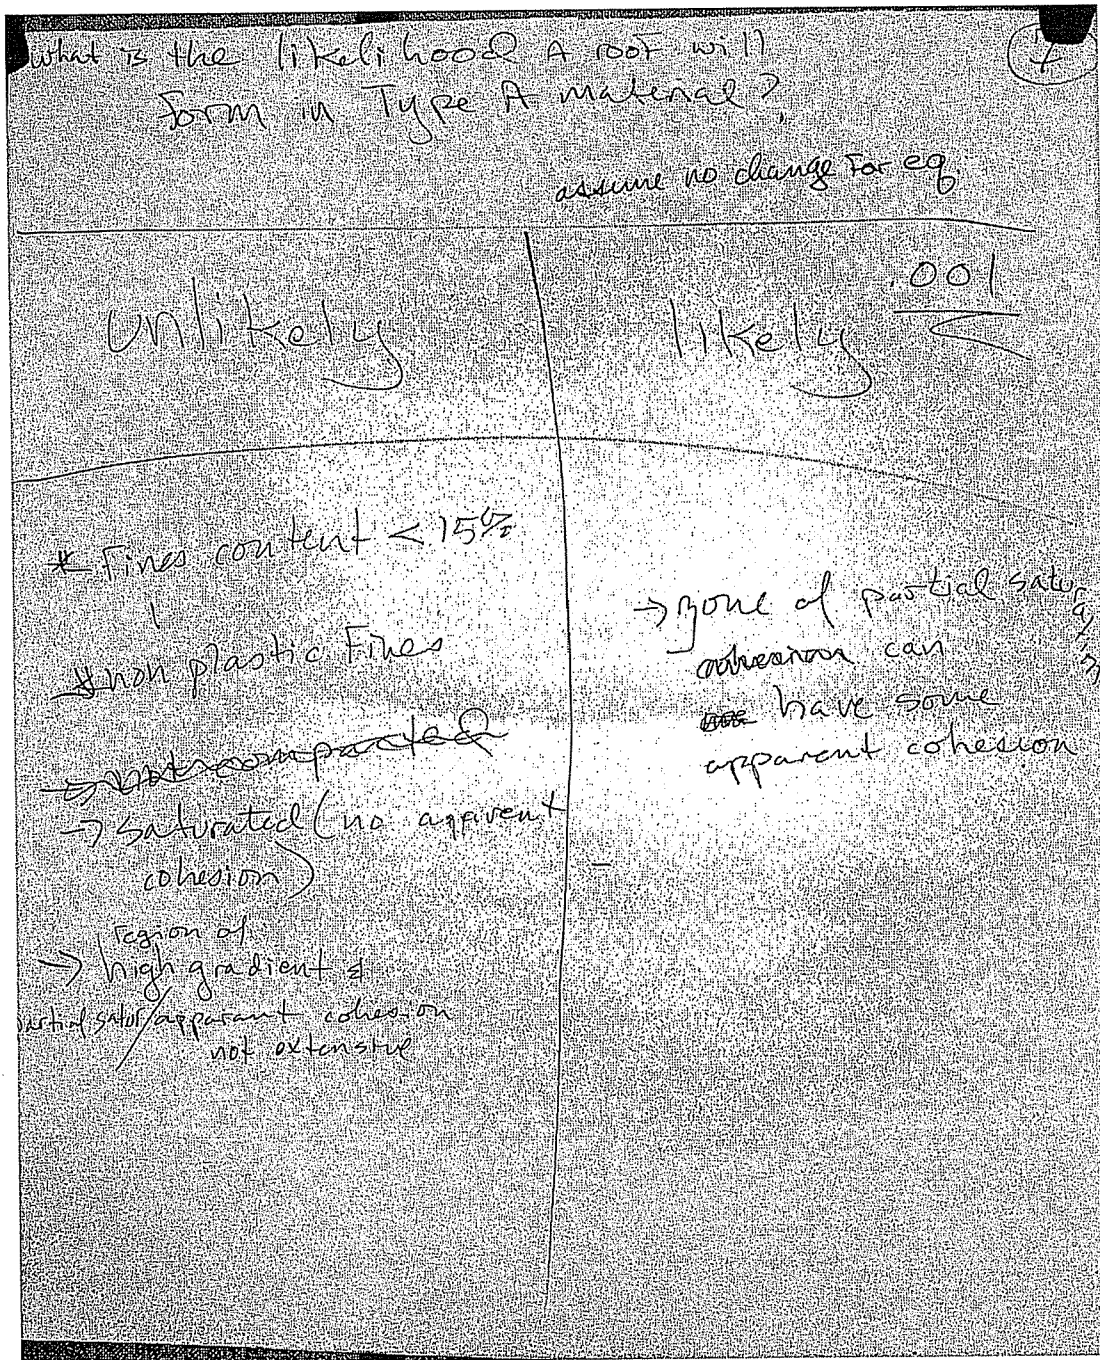 what is the likelihood A roof will
form in Type A material?
assume no change for eq.
Unlikely
* Fines content < 15%
* non plastic Fines
→ not compacted
→ saturated (no apparent
cohesion)
region of
→ high gradient &
partial satur/apparant cohesion
not extensive
.001
likely
→ zone of partial saturation
can
have some
apparent cohesion